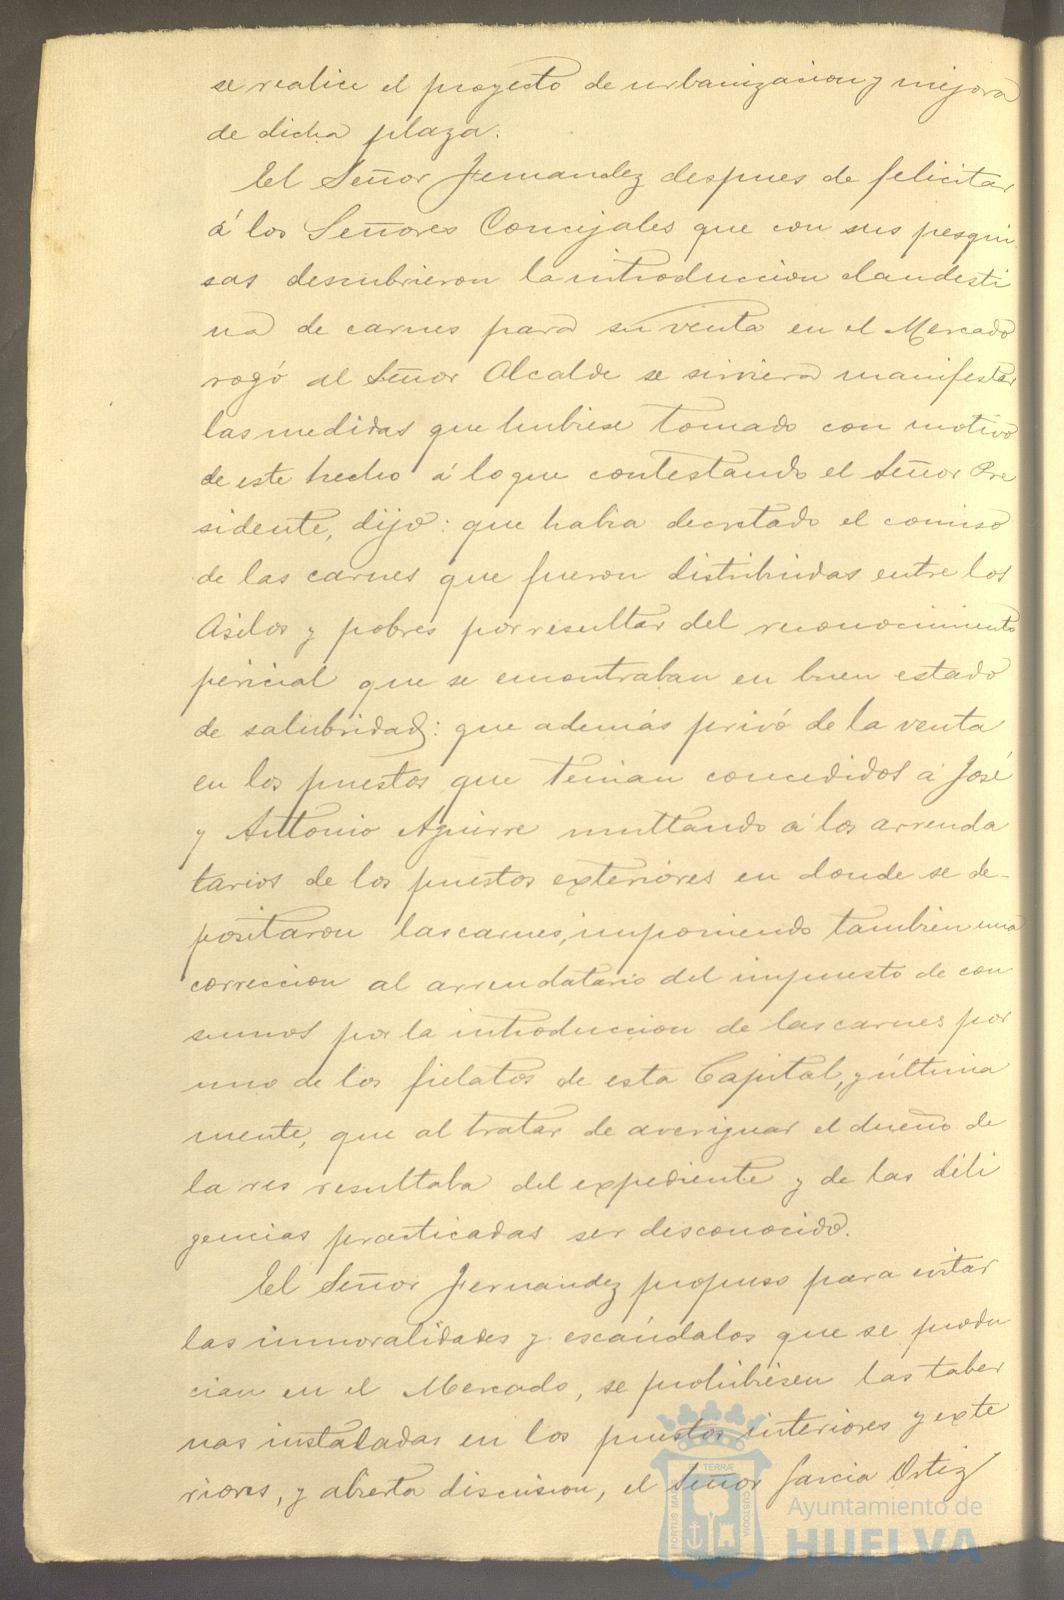 se realice el proyecto de urbanizacion y mejora
de dicha plaza.
El Señor Fernandez despues de felicitar
á los Señores Concejales que con sus pesqui
sas descubrieron la introduccion clandesti
na de carnes para su venta en el Mercado
rogó al Señor Alcalde se sirviera manifestar
las medidas que hubiese tomado con motivo
de este hecho á lo que contestando el Señor Pre
sidente, dijo: que habia decretado el comiso
de las carnes que fueron distribuidas entre los
Asilos y pobres por resultar del reconocimiento
pericial que se encontraban en buen estado
de salubridad: que además privó de la venta
en los puestos que tenian concedidos á José
y Antonio Aguirre multando á los arrenda
tarios de los puestos exteriores en donde se de-
positaron las carnes, imponiendo tambien una
correccion al arrendatario del impuesto de con
sumos por la introduccion de las carnes por
uno de los fielatos de esta Capital, y última
mente, que al tratar de averiguar el dueño de
la res resultaba del expediente y de las dili
gencias practicadas ser desconocido.
El Señor Fernandez propuso para evitar
las inmoralidades y escándalos que se produ
cian en el Mercado, se prohibiesen las taber
nas instaladas en los puestos interiores y exte
riores, y abierta discusion, el Señor Garcia Ortiz
PORTUS MARIS
TERRÆ
CUSTODIA
Ayuntamiento de
HUELVA